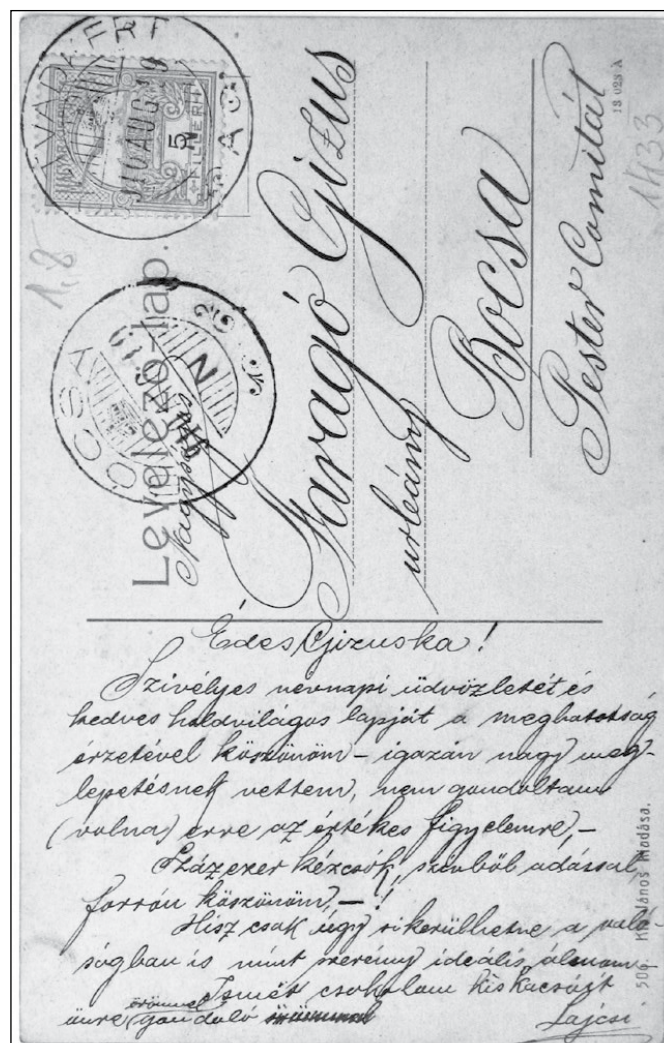 Levelező-lap.
Nagyságos
Faragó Gizus
urleány
Bocsa
Pester Comitat
13 023 A
1433
1,8
MAGYAR
FILLÉR
910 AUG 19
5 N
Édes Gizuska!
Szivélyes nevnapi üdvözletét és
kedves holdvilágos lapját a meghatottság
érzetével köszönöm – igazán nagy meg-
lepetésnek vettem, nem gondoltam
(volna) erre az értékes figyelemre, –
Százezer kézcsók, szivböl adással,
forrón köszönöm, – !
Hisz csak úgy sikerülhetne a való-
ságban is mint szerény ideális álmom
Ismét csokolom kis kacsóját
önre örömmel gondoló
Lajcsi
506. János kiadása.